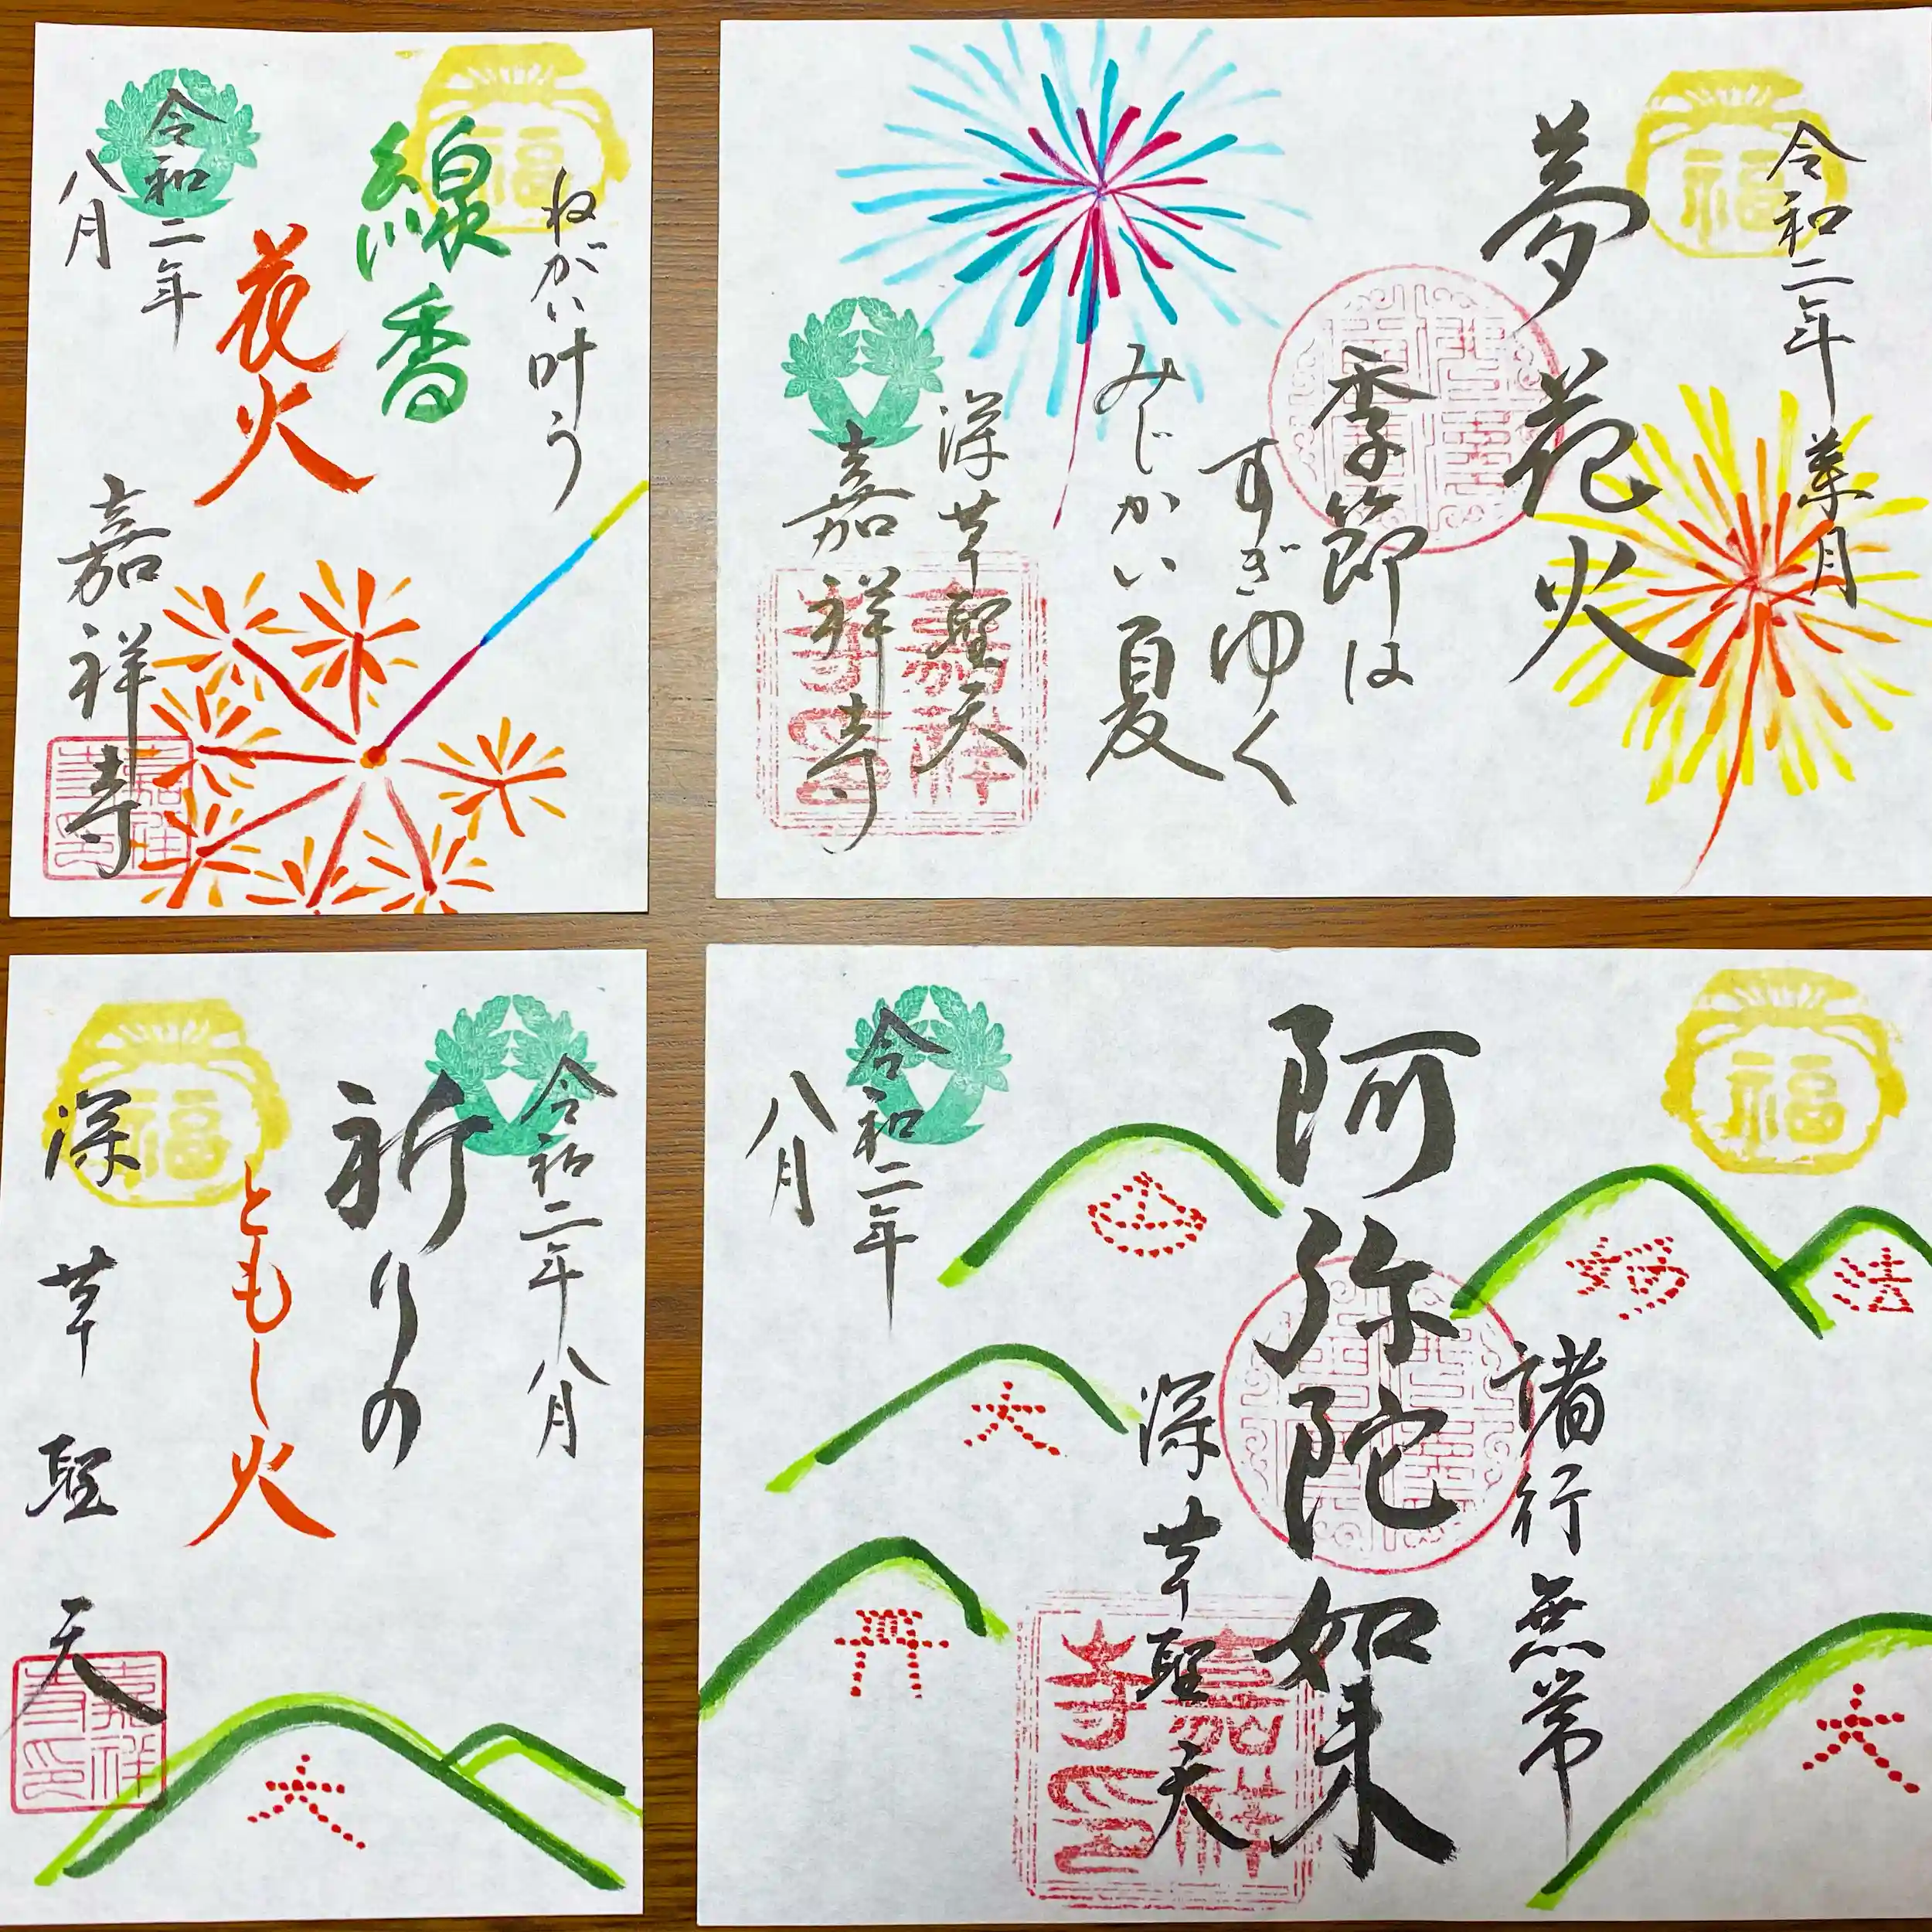 ねがい叶う
線香
花火
令和二年
八月
嘉祥寺
福
嘉祥
寺印
令和二年葉月
夢花火
季節は
すぎゆく
みじかい夏
深草聖天
嘉祥寺
福
嘉祥
寺印
令和二年八月
祈りの
ともし火
深草聖天
福
大
嘉祥
寺印
諸行無常
阿弥陀如来
深草聖天
令和二年
八月
福
妙
法
大
大
嘉祥
寺印